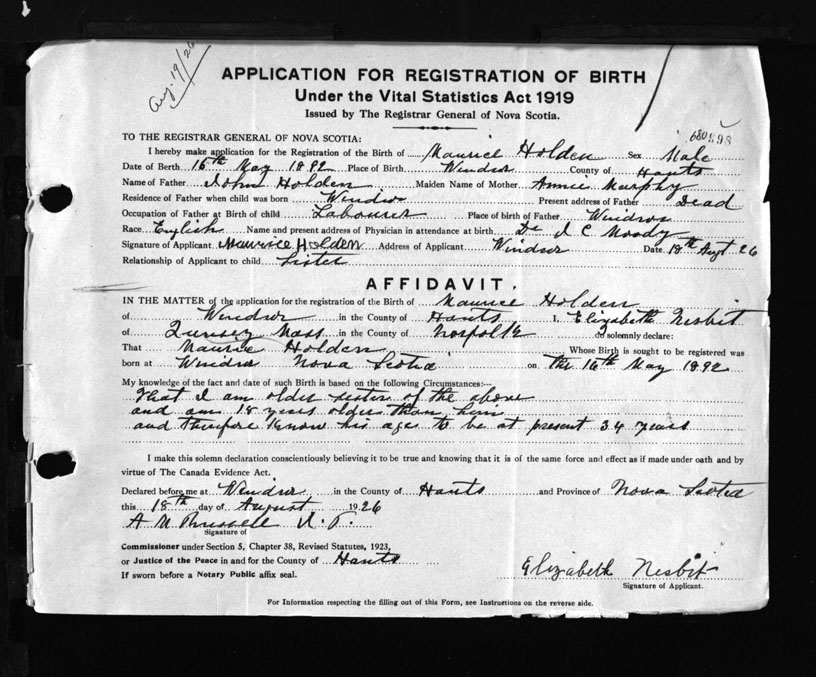 Aug. 19/26
APPLICATION FOR REGISTRATION OF BIRTH
Under the Vital Statistics Act 1919
Issued by The Registrar General of Nova Scotia.
TO THE REGISTRAR GENERAL OF NOVA SCOTIA:
I hereby make application for the Registration of the Birth of Maurice Holden Sex Male
Date of Birth 16th May 1892 Place of Birth Windsor County of Hants
Name of Father John Holden Maiden Name of Mother Annie Murphy
Residence of Father when child was born Windsor Present address of Father Dead
Occupation of Father at Birth of child Labourer Place of birth of Father Windsor
Race English Name and present address of Physician in attendance at birth Dr J C Moody
Signature of Applicant Maurice Holden Address of Applicant Windsor Date 18th Augt 26
Relationship of Applicant to child Sister
AFFIDAVIT.
IN THE MATTER of the application for the registration of the Birth of Maurice Holden
of Windsor in the County of Hants I, Elizabeth Nesbit
of Quinsey Mass in the County of Norfolk do solemnly declare:
That Maurice Holden Whose Birth is sought to be registered was
born at Windsor Nova Scotia on the 16th May 1892
My knowledge of the fact and date of such Birth is based on the following Circumstances:—
That I am older sister of the above
and am 18 years older than him
and therefore know his age to be at present 34 years
I make this solemn declaration conscientiously believing it to be true and knowing that it is of the same force and effect as if made under oath and by
virtue of The Canada Evidence Act.
Declared before me at Windsor in the County of Hants and Province of Nova Scotia
this 18th day of August 1926
A M
Signature of
Commissioner under Section 5, Chapter 38, Revised Statutes, 1923,
or Justice of the Peace in and for the County of Hants
If sworn before a Notary Public affix seal.
Elizabeth Nesbit
Signature of Applicant.
For Information respecting the filling out of this Form, see Instructions on the reverse side.